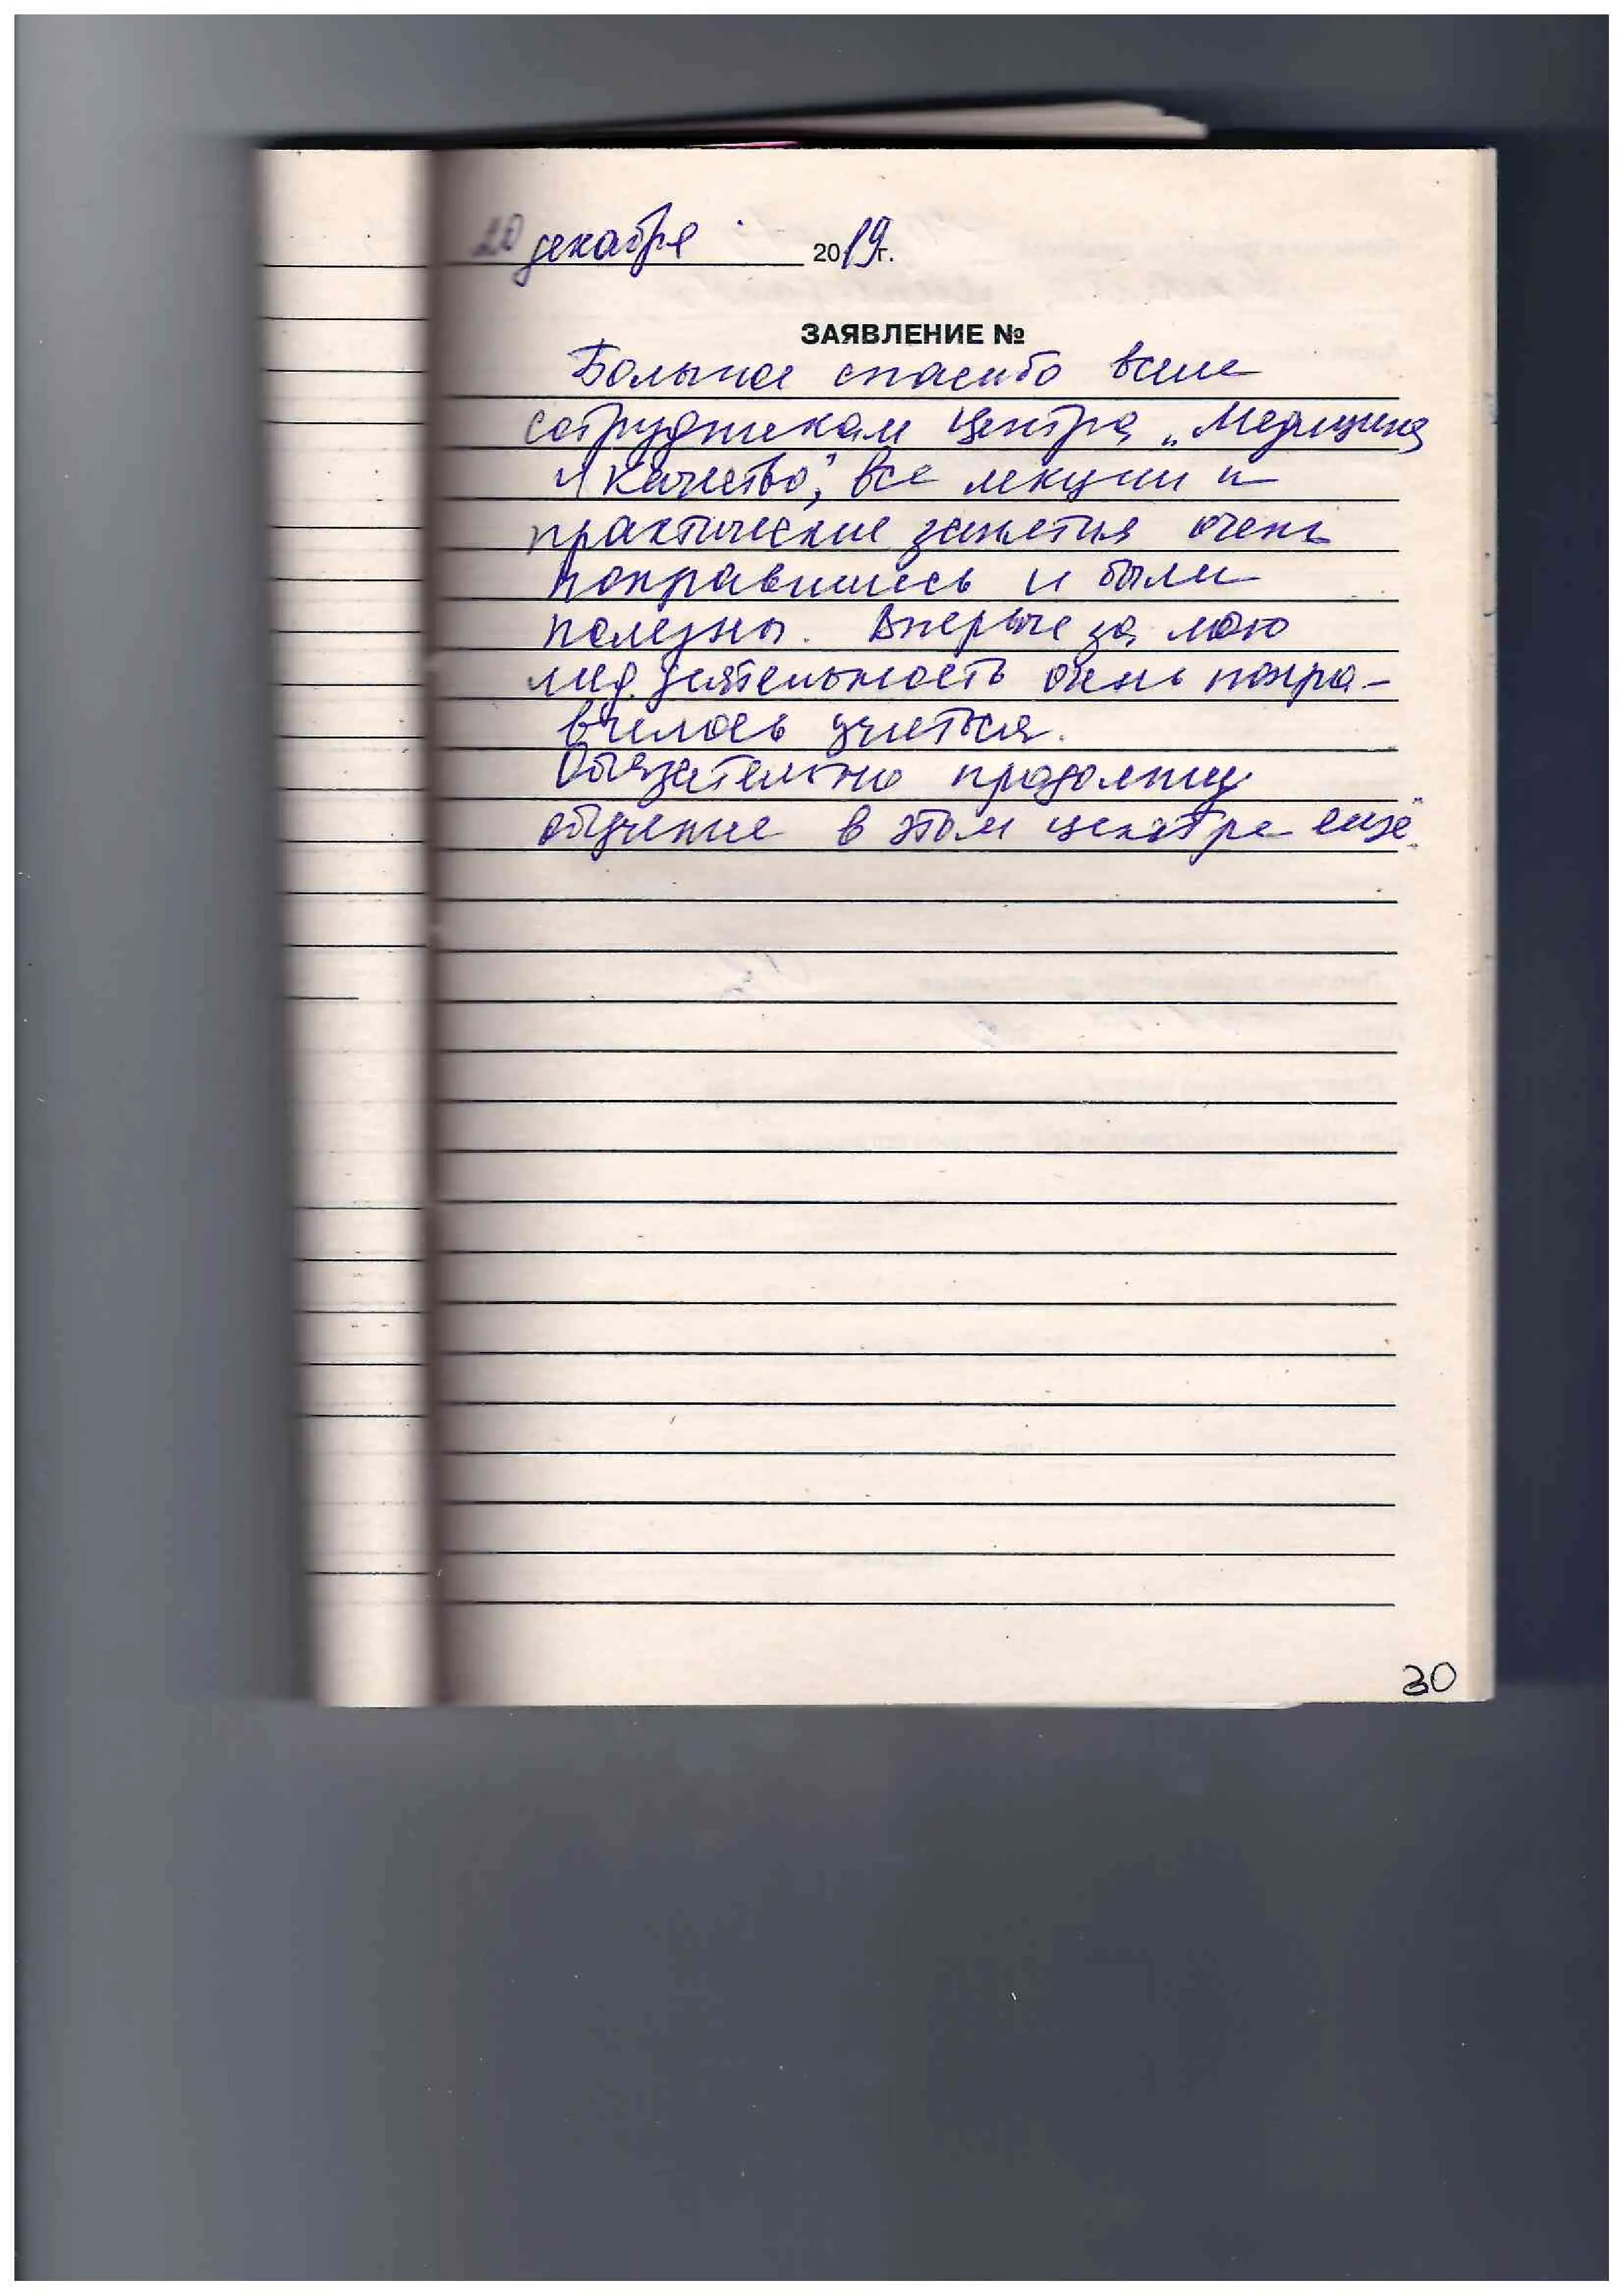 20 декабря 2019г.
ЗАЯВЛЕНИЕ №
Большое спасибо всем
сотрудникам центра „Медицина
и качество", все лекции и
практические занятия очень
понравились и были
полезны. Впервые за мою
мед. деятельность очень понра-
вилось учиться.
Обязательно продолжу
обучение в этом центре ещё.
30